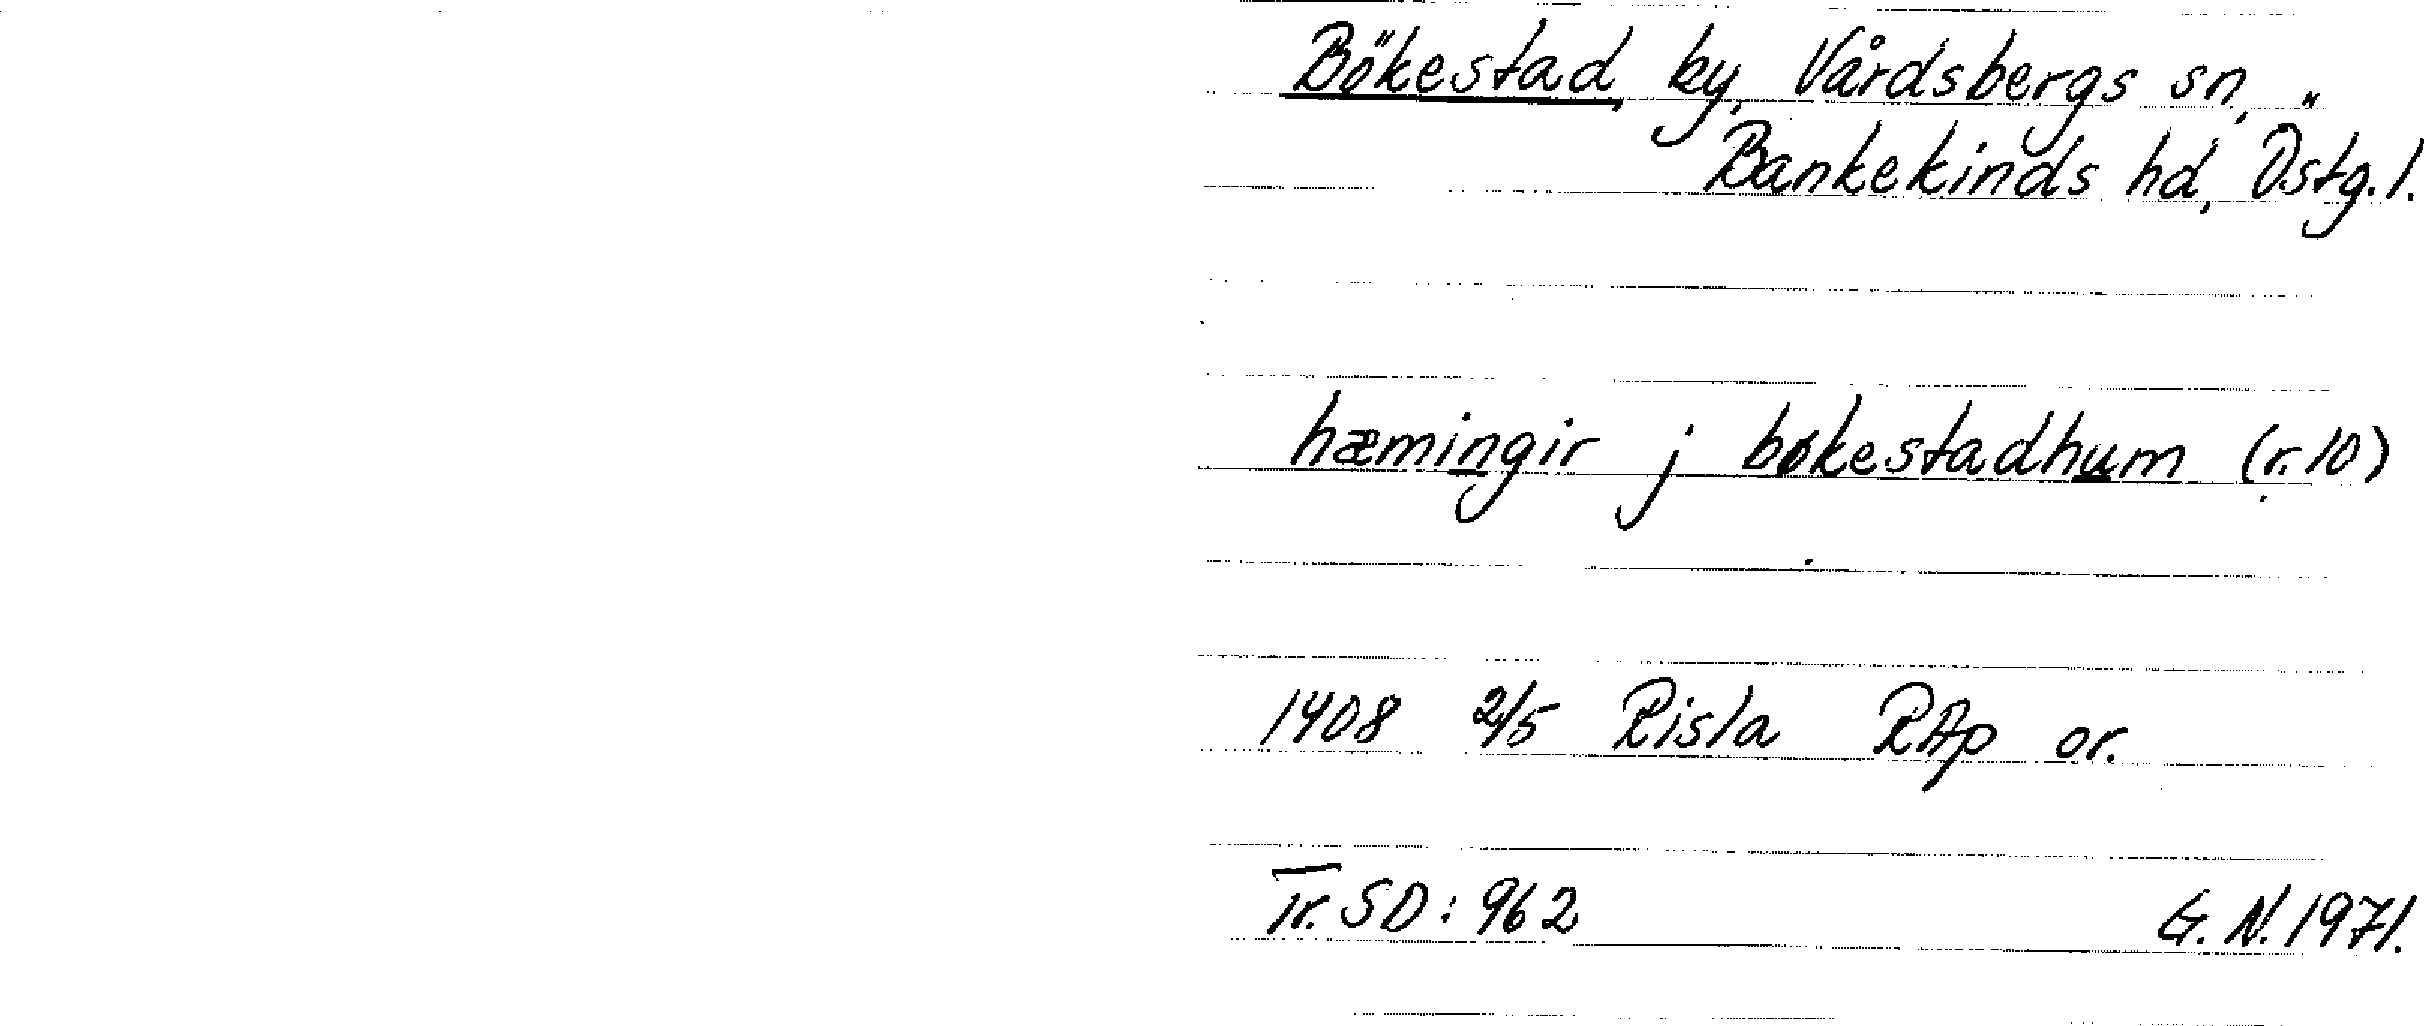 Bökestad, by, Vårdsbergs sn,
Bankekinds hd, Östg.l.
hæmingir j bøkestadhum (r. 10)
1408 2/5 Risla RAp or.
Tr. SD: 962 G. N. 1971.